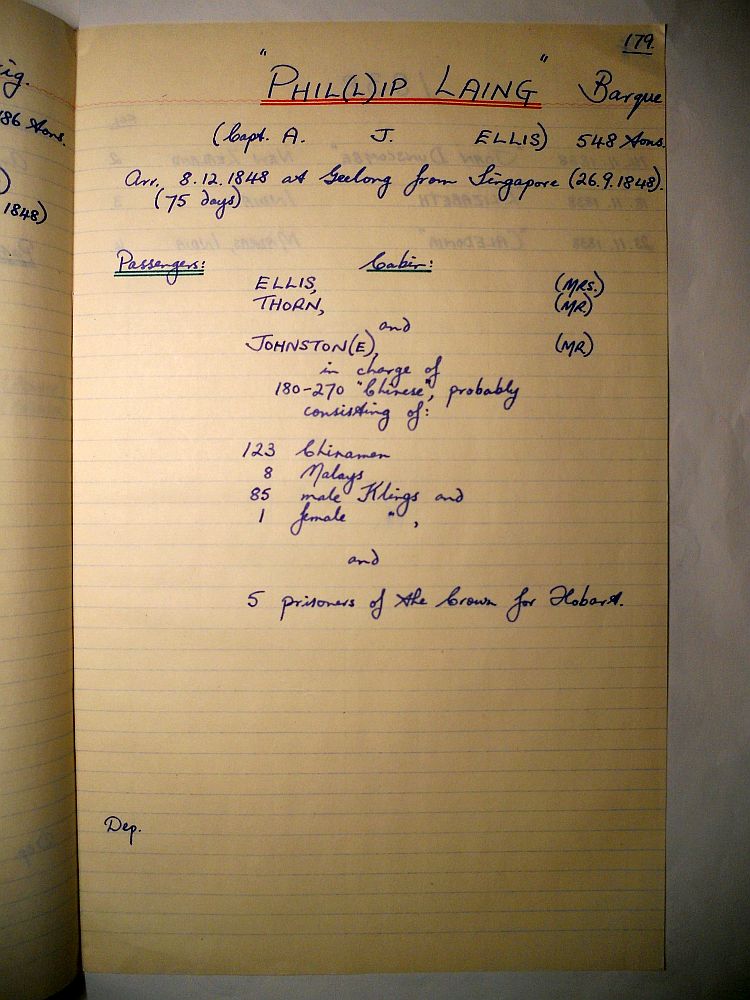 ig.
186 tons.
)
1848)
179.
"PHIL(L)IP LAING" Barque
(Capt. A. J. ELLIS) 548 tons.
Arr. 8.12.1848 at Geelong from Singapore (26.9.1848).
(75 days)
Passengers: Cabin:
ELLIS, (MRS.)
THORN, (MR)
and
JOHNSTON(E), (MR)
in charge of
180-270 "Chinese", probably
consisting of:
123 Chinamen
8 Malays
85 male Klings and
1 female ",
and
5 prisoners of the Crown for Hobart.
Dep.